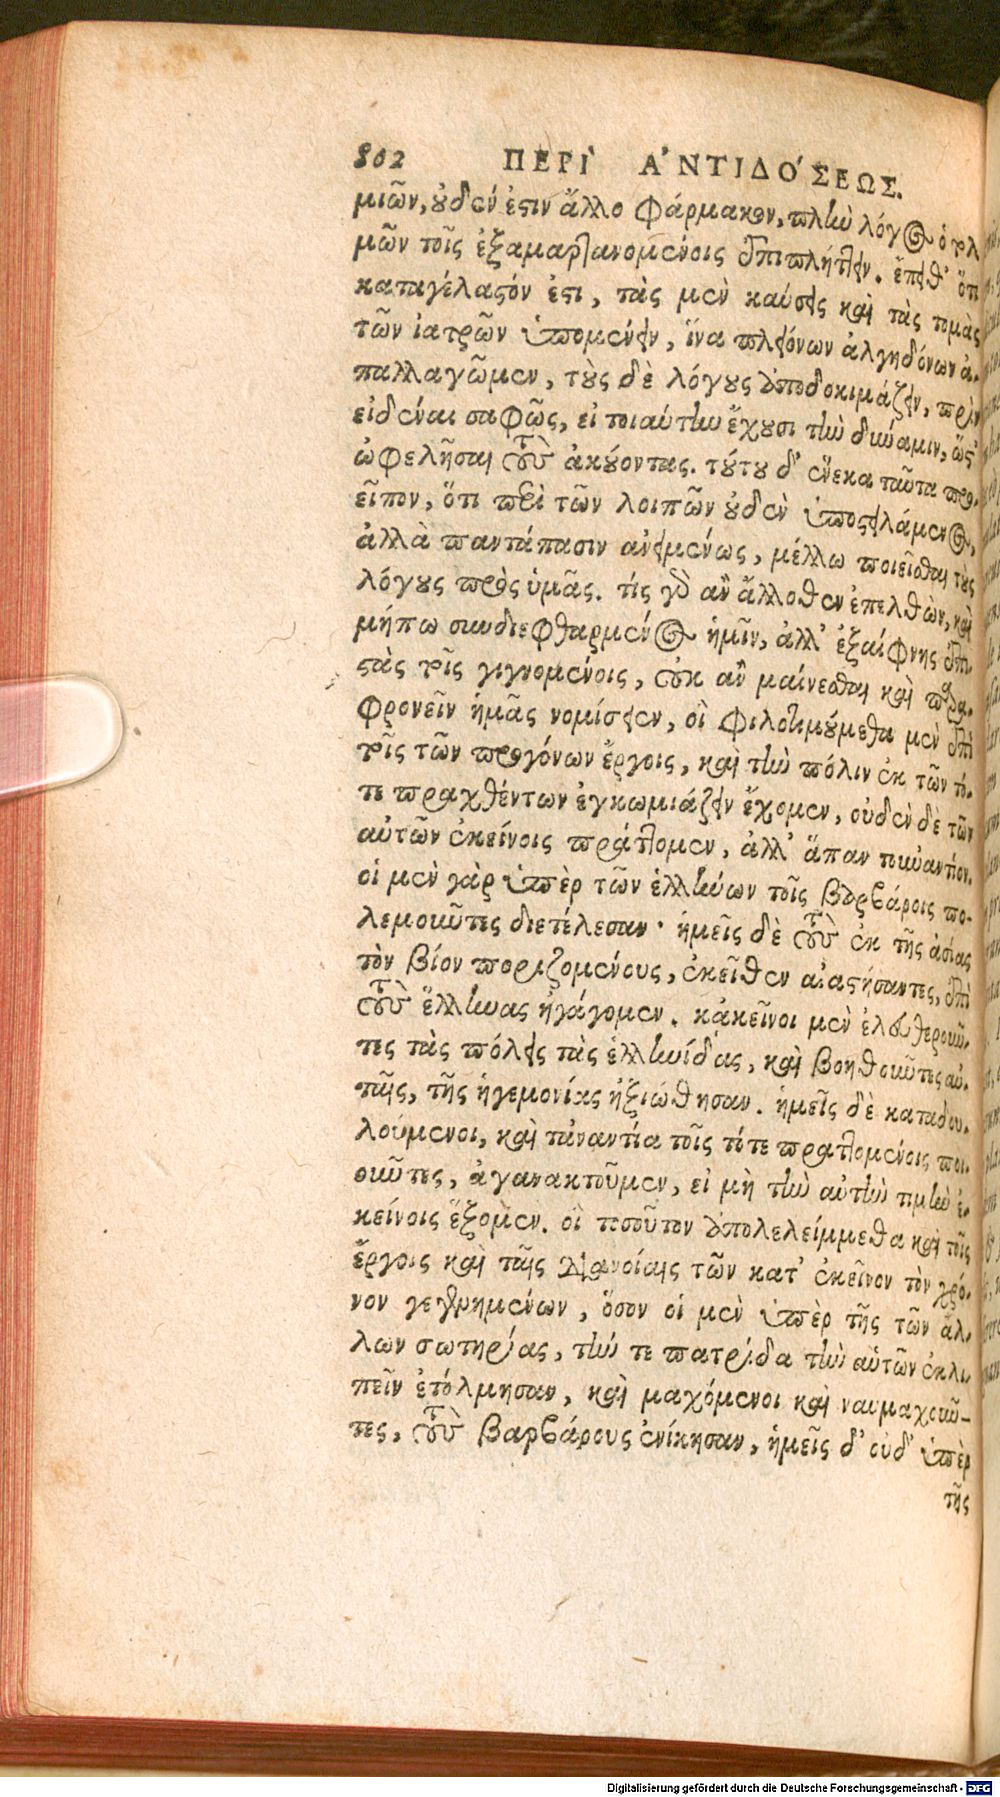 802 ΠΕΡῚ ἈΝΤΙΔΌΣΕΩΣ.
μιῶν, οὐδέν ἐστιν ἄλλο φάρμακον, πλὴν λόγος ὁ τολ
μῶν τοῖς ἐξαμαρτανομένοις ἐπιπλήττειν. ἔπειθ' ὅτι
καταγέλαστόν ἐστι, τὰς μὲν καύσεις καὶ τὰς τομὰς
τῶν ἰατρῶν ὑπομένειν, ἵνα πλειόνων ἀλγηδόνων ἀ-
παλλαγῶμεν, τοὺς δὲ λόγους ἀποδοκιμάζειν, πρὶν
εἰδέναι σαφῶς, εἰ τοιαύτην ἔχουσι τὴν δύναμιν, ὥστ'
ὠφελῆσαι τοὺς ἀκούοντας. τούτου δ' ἕνεκα ταῦτα προ-
εῖπον, ὅτι περὶ τῶν λοιπῶν οὐδὲν ὑποστειλάμενος,
ἀλλὰ παντάπασιν ἀνειμένως, μέλλω ποιεῖσθαι τοὺς
λόγους πρὸς ὑμᾶς. τίς γὰρ ἂν ἄλλοθεν ἐπελθὼν, καὶ
μήπω συνδιεφθαρμένος ἡμῖν, ἀλλ' ἐξαίφνης ἐπι-
στὰς τοῖς γιγνομένοις, οὐκ ἂν μαίνεσθαι καὶ παρα-
φρονεῖν ἡμᾶς νομίσειεν, οἳ φιλοτιμούμεθα μὲν ἐπὶ
τοῖς τῶν προγόνων ἔργοις, καὶ τὴν πόλιν ἐκ τῶν τό-
τε πραχθέντων ἐγκωμιάζειν ἔχομεν, οὐδὲν δὲ τῶν
αὐτῶν ἐκείνοις πράττομεν, ἀλλ' ἅπαν τοὐναντίον.
οἱ μὲν γὰρ ὑπὲρ τῶν ἑλλήνων τοῖς βαρβάροις πο-
λεμοῦντες διετέλεσαν· ἡμεῖς δὲ τοὺς ἐκ τῆς ἀσίας
τὸν βίον ποριζομένους, ἐκεῖθεν ἀναστήσαντες, ἐπὶ
τοὺς ἕλληνας ἠγάγομεν. κἀκεῖνοι μὲν ἐλευθεροῦν-
τες τὰς πόλεις τὰς ἑλληνίδας, καὶ βοηθοῦντες αὐ-
ταῖς, τῆς ἡγεμονίας ἠξιώθησαν. ἡμεῖς δὲ καταδου-
λούμενοι, καὶ τἀναντία τοῖς τότε πραττομένοις ποι-
οῦντες, ἀγανακτοῦμεν, εἰ μὴ τὴν αὐτὴν τιμὴν ἐ-
κείνοις ἕξομεν. οἳ τοσοῦτον ἀπολελείμμεθα καὶ τοῖς
ἔργοις καὶ ταῖς διανοίαις τῶν κατ' ἐκεῖνον τὸν χρό-
νον γεγενημένων, ὅσον οἱ μὲν ὑπὲρ τῆς τῶν ἄλ-
λων σωτηρίας, τήν τε πατρίδα τὴν αὑτῶν ἐκλι-
πεῖν ἐτόλμησαν, καὶ μαχόμενοι καὶ ναυμαχοῦν-
τες, τοὺς βαρβάρους ἐνίκησαν, ἡμεῖς δ' οὐδ' ὑπὲρ
τῆς
Digitalisierung gefördert durch die Deutsche Forschungsgemeinschaft - DFG